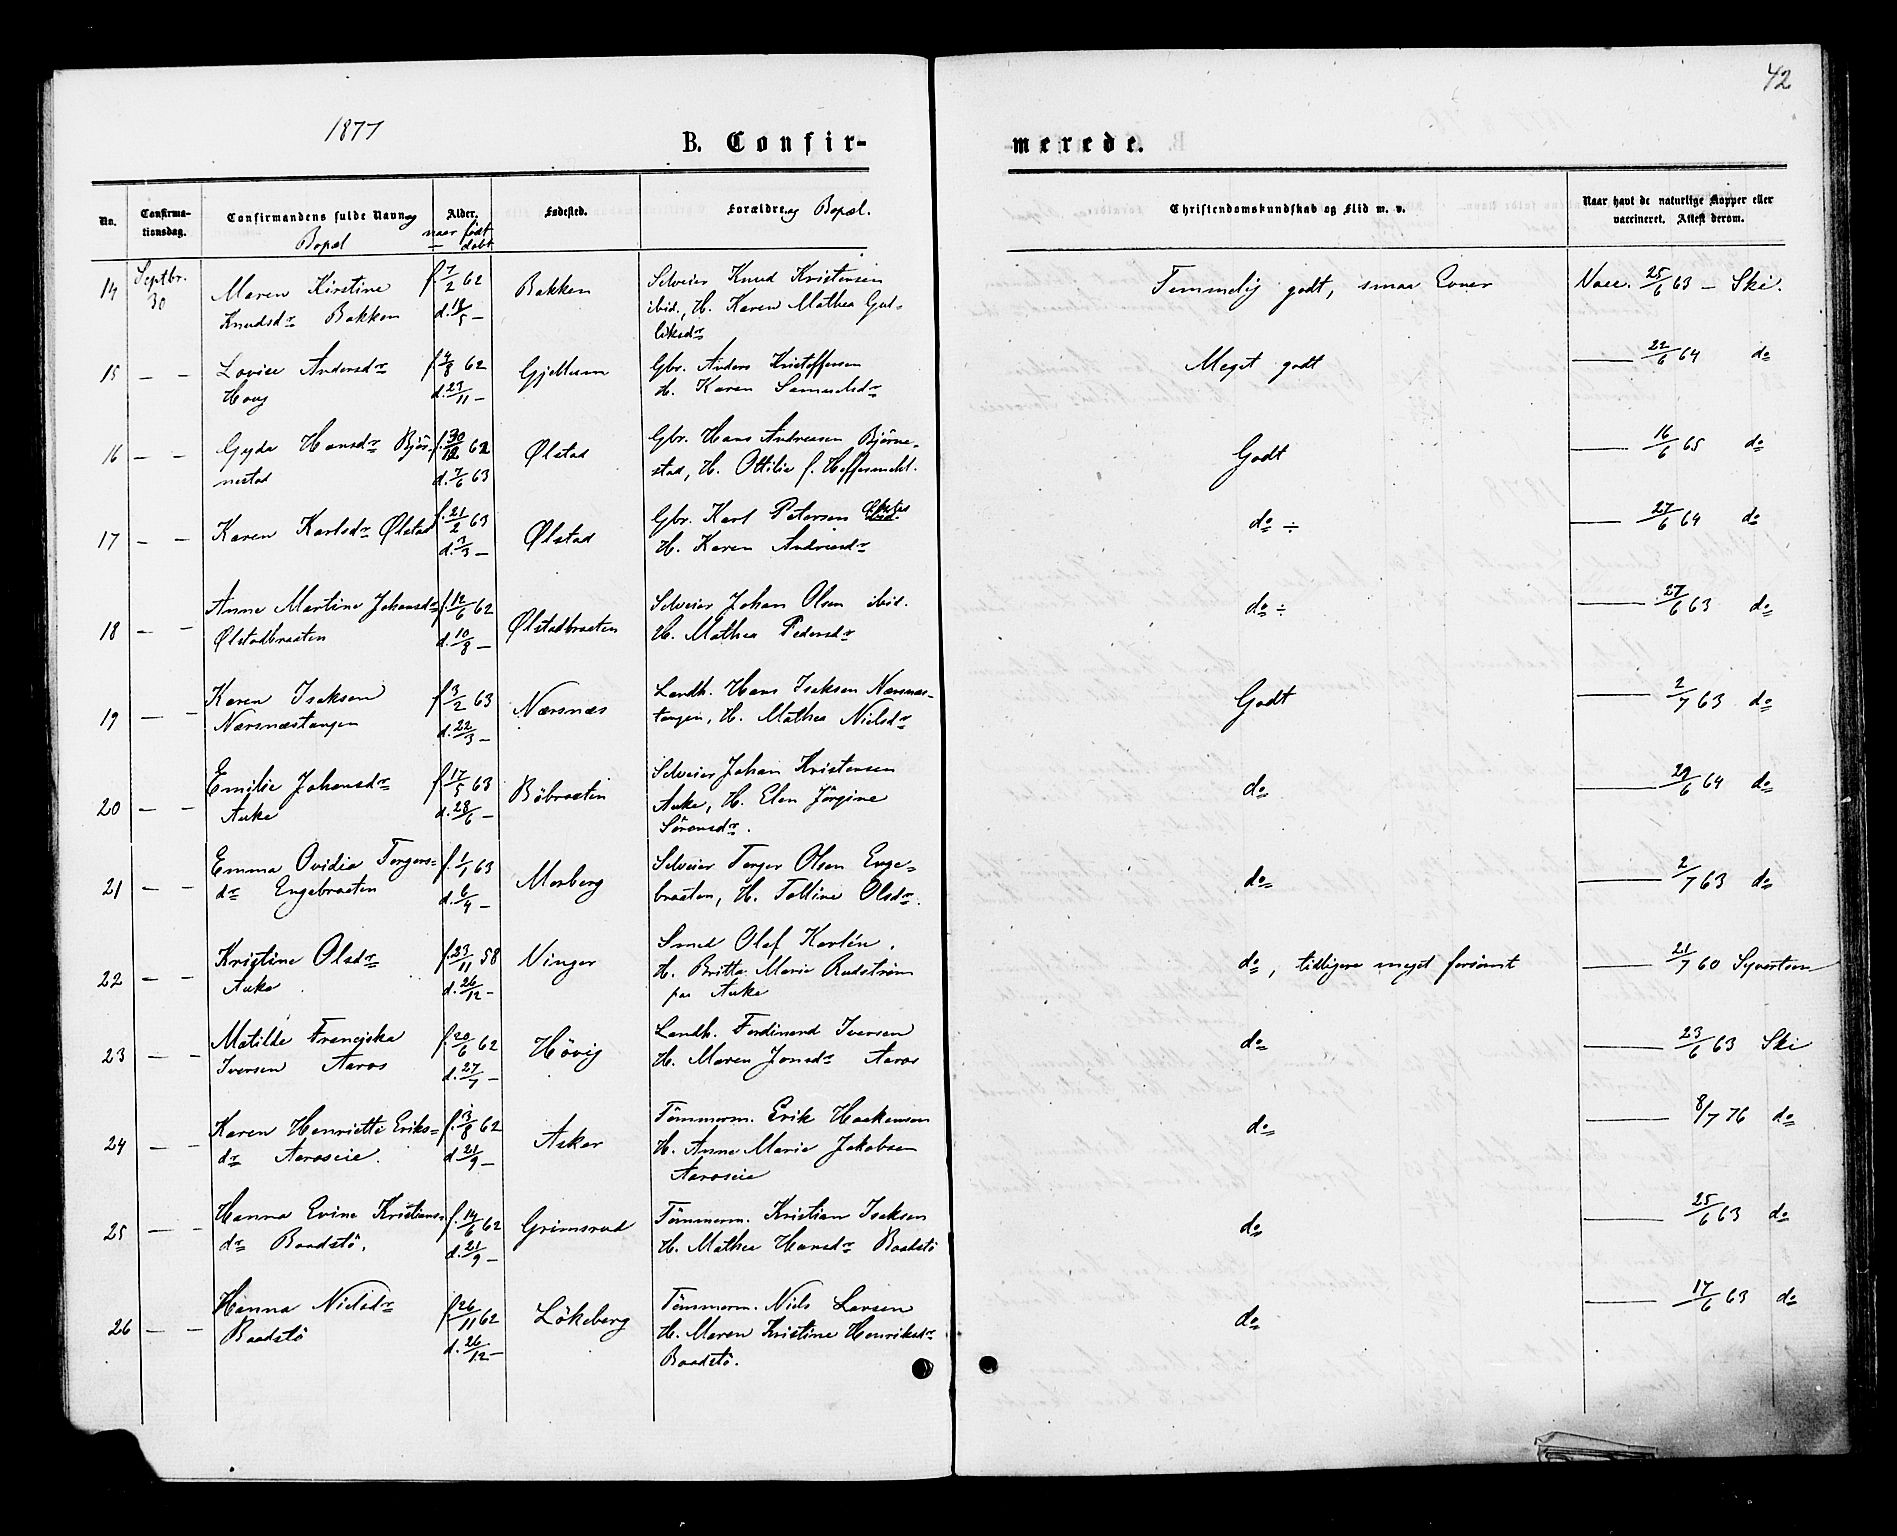 42
1877
B. Confir-
merede.
No.
Confirma-
tionsdag.
Confirmandens fulde Navn og
Bopæl
Alder.
naar født
— døbt
Fødested.
Forældre og Bopæl.
Christendomskundskab og Flid m. v.
Naar havt de naturlige Kopper eller
vaccineret. Attest derom.
14 Septbr. 30
Maren Kirstine
Knudsdr Bakken
f. 7/2 62
d. 18/5 —
Bakken
Selveier Knud Kristensen
ibid., H. Karen Mathea Gul-
liksdr
Temmelig godt, smaa Evner
Vacc. 25/6 63 — Ski.
15 — —
Lovise Andersdr
Houg
f. 4/8 62
d. 23/11 —
Gjellum
Gbr. Anders Kristoffersen
H. Karen Samuelsdr
Meget godt
— 22/6 64 do
16 — —
Gyda Hansdr Bjør-
nestad
f. 30/12 62
d. 7/6 63
Ølstad
Gbr. Hans Andreasen Bjørne-
stad, H. Ottilie f.
Godt
— 16/6 65 do
17 — —
Karen Karlsdr Ølstad
f. 21/2 63
d. 7/3 —
Ølstad
Gbr. Karl Petersen Ølstad
H. Karen Andreasdr
do ÷
— 27/6 64 do
18 — —
Anne Martine Johansdr
Ølstadbraaten
f. 12/6 62
d. 10/8 —
Ølstadbraaten
Selveier Johan Olsen ibid.
H. Mathea Pedersdr
do ÷
— 27/6 63 do
19 — —
Karen Isaksen
Nærsnæstangen
f. 3/2 63
d. 22/3 —
Nærsnæs
Landh. Hans Isaksen Nærsnæs-
tangen, H. Mathea Nielsdr
Godt
— 2/7 63 do
20 — —
Emilie Johansdr
Auke
f. 17/5 63
d. 28/6 —
Böbraaten
Selveier Johan Kristensen
Auke, H. Elen Jørgine
Sørensdr.
do
— 29/6 64 do
21 — —
Emma Ovidia Torgers-
dr Engebraaten
f. 1/1 63
d. 6/4 —
Morberg
Selveier Torger Olsen Enge-
braaten, H. Talline Olsdr.
do
— 2/7 63 do
22 — —
Kristine Olsdr
Auke
f. 23/11 58
d. 26/12 —
Vinger
Smed Olaf Karlén.
H. Britta Marie Rudström
paa Auke
do, tidligere meget forsømt
— 21/7 60 Syvertsen
23 — —
Matilde Franciska
Iversen Aaros
f. 20/6 62
d. 27/7 —
Hövig
Landh. Ferdinand Iversen
H. Maren Jonsdr Aaros
do
— 23/6 63 Ski
24 — —
Karen Henriette Eriks-
dr Aaroseie.
f. 3/8 62
d. 21/9 —
Asker
Tömmerm. Erik Haakensen
H. Anne Marie Jakobsen
Aaroseie
do
— 8/7 76 do
25 — —
Hanna Evine Kristians-
dr Baadstö.
f. 14/6 62
d. 21/9 —
Grimsrud
Tömmerm. Kristian Isaksen
H. Mathea Hansdr Baadstö
do
— 25/6 63 do
26 — —
Hanna Nielsdr
Baadstö
f. 26/11 62
d. 26/12 —
Lökeberg
Tömmerm. Niels Larsen
H. Maren Kristine Henriksdr
Baadstö.
do
— 17/6 63 do